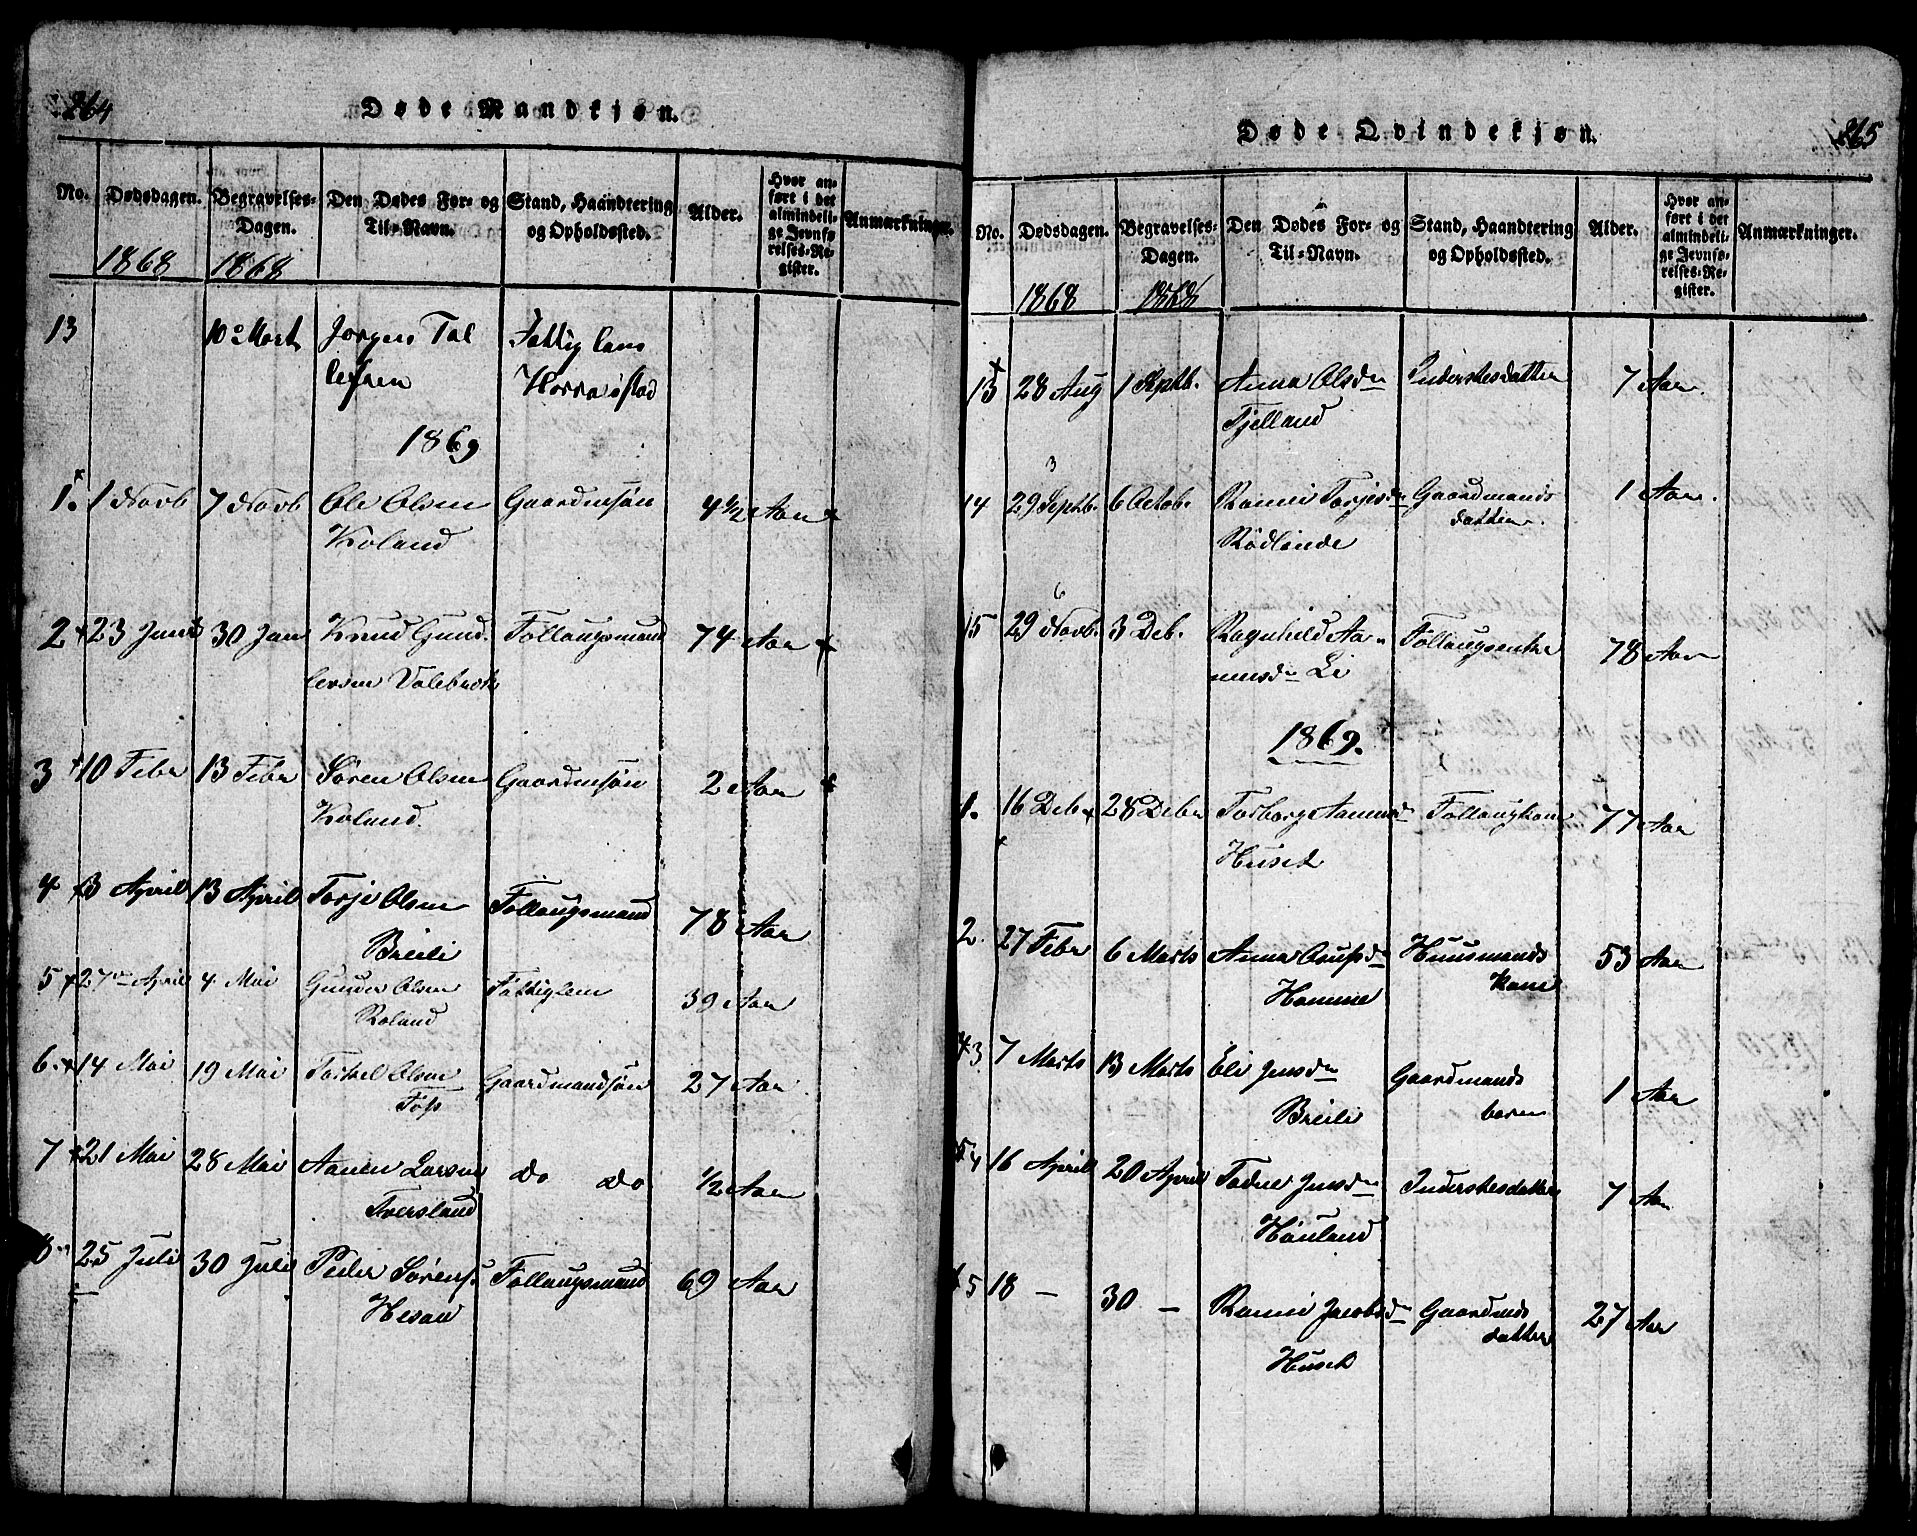 264
Døde Mandkjøn.
No. Dødsdagen. Begravelses-Dagen. Den Dødes For- og Til-Navn. Stand, Haandtering og Opholdssted. Alder. Hvor anført i det almindelige Jevnførelses-Register. Anmærkninger.
1868 1868
13 10 Mart Jørgen Tal Fattiglem
lefsen
1869
1. 1 Novb 7 Novb Ole Olsen Gaardmsøn 4½ Aar
Roland
2 23 Janu 30 Jan Knud Gund Føllaugsmand 74 Aar
lersen
3 10 Febr 13 Febr Søren Olsen Gaardmsøn 2 Aar
Roland.
4 3 April 13 April Torje Olsen Føllaugsmand 78 Aar
Breili
5 27 April 4 Mai Gunder Olsen Fattiglem 39 Aar
Roland
6. 14 Mai 19 Mai Torkel Olsen Gaardmandsøn 27 Aar
Foss
7 21 Mai 28 Mai Aanen Larsen do do ½ Aar
Tversland
8 25 Juli 30 Juli Peder Sørens Føllaugsmand 69 Aar
Hesaa
265
Døde Qvindekjøn.
No. Dødsdagen. Begravelses-Dagen. Den Dødes For- og Til-Navn. Stand, Haandtering og Opholdssted. Alder. Hvor anført i det almindelige Jevnførelses-Register. Anmærkninger.
1868 1868
13 28 Aug 1 Septb. Anna Olsdr Inderstesdatter 7 Aar.
Fjelland
3
14 29 Septb. 6 Octob. Rannei Torjesdr Gaardmands 1 Aar.
datter.
6
15 29 Novb. 3 Deb. Ragnhild Aa Føllaugsenke 78 Aar
nensdr Li
1869.
1. 16 Deb 28 Debr Torborg Aanensd Føllaugkone 77 Aar
Husek
2. 27 Febr 6 Marts Anna Huusmands 53 Aar
Homme Kone
3 7 Marts 13 Marts Eli Jensdr Gaardmands 1 Aar
Breili barn
4 16 April 20 April Todne Jensdr Inderstesdatter 7 Aar
Houland
5 18 – 30 – Rannei Jacobsdr Gaardmds 27 Aar
Husek datter